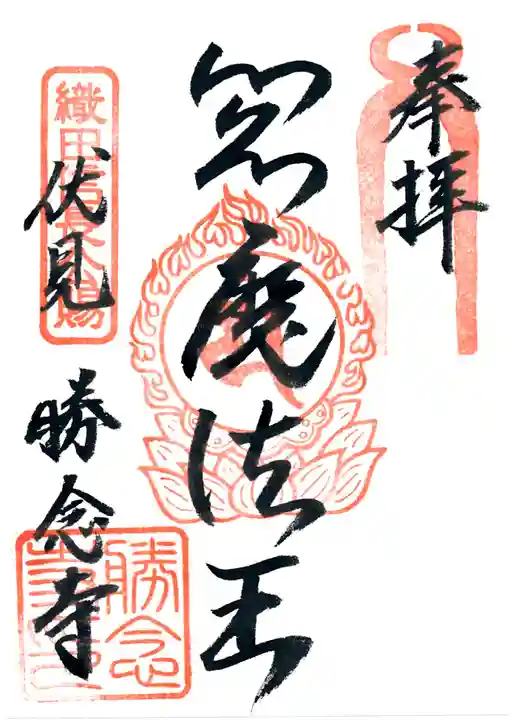 奉拝
閻魔法王
織田信長公賜
伏見
勝念寺
勝念